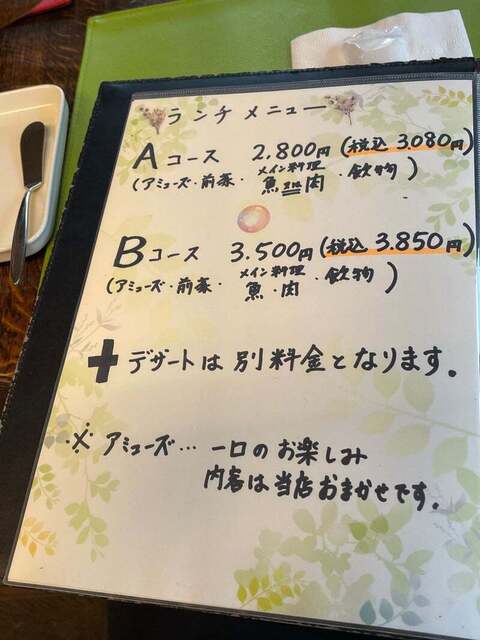 ランチ メニュー
Aコース 2.800円(税込 3.080円)
(アミューズ・前菜・メイン料理 魚又は肉・飲物)
Bコース 3.500円(税込 3.850円)
(アミューズ・前菜・メイン料理 魚・肉・飲物)
+ デザートは別料金となります。
※ アミューズ… 一口のお楽しみ
内容は当店おまかせです。